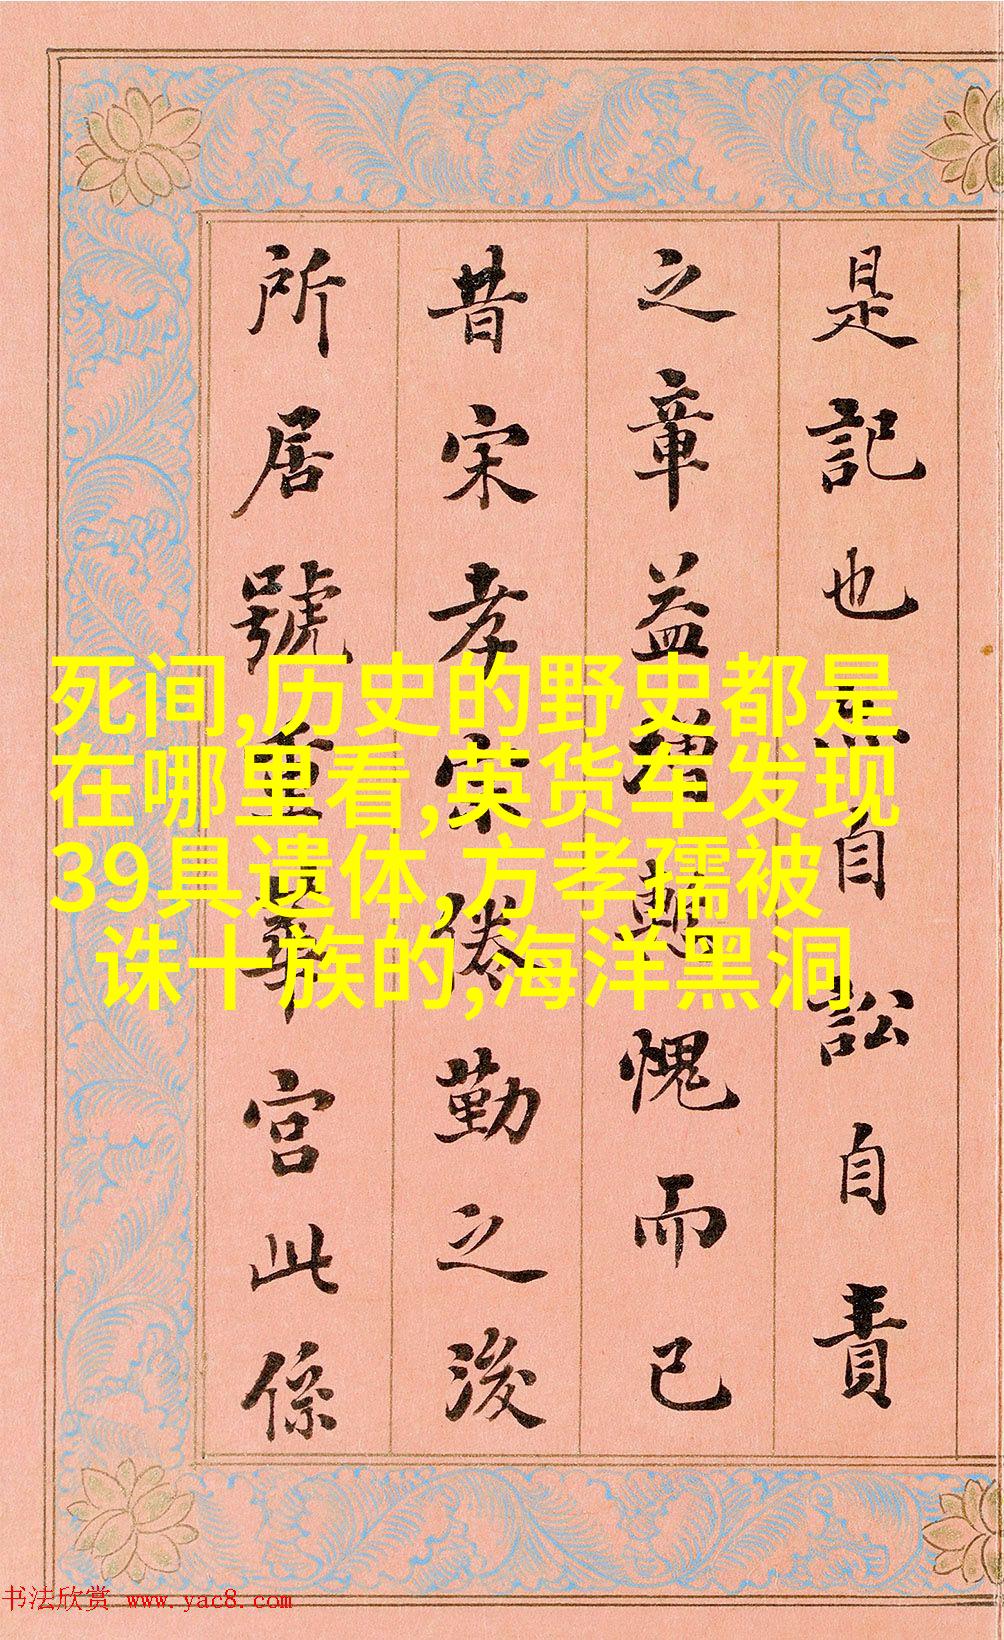 是記也
自訟自責
之章益增
愧而已
昔宋孝宗倦勤之後
所居號重華宮此係
死间,历史的野史都是
在哪里看,英货车发现
39具遗体,方孝孺被
诛十族的,海洋黑洞
书法欣赏 www.yac8.com